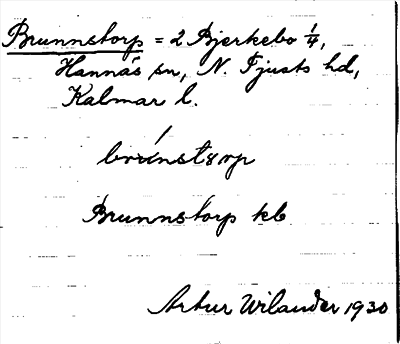 Brunnstorp = 2 Bjerkebo 1/4,
Hannäs sn, N. Tjusts hd,
Kalmar l.
Brunnstorp kb
Artur Wilander 1930